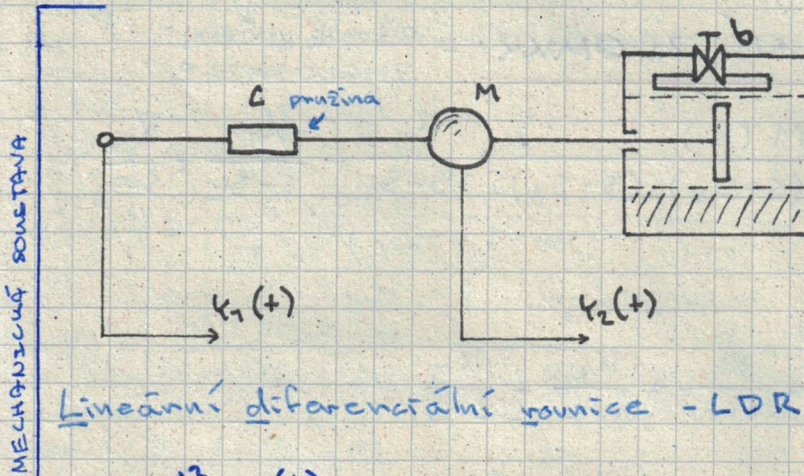 MECHANICKÁ SOUSTAVA
C pružina M b
y₁(t) y₂(t)
Lineární diferenciální rovnice - LDR